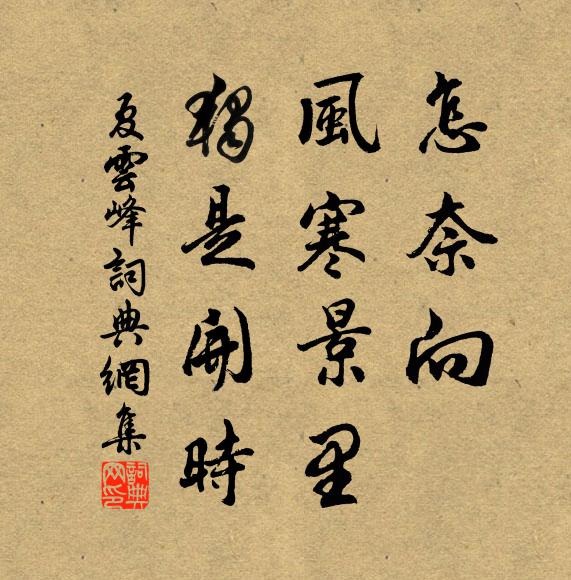 怎奈向
風寒景里
獨是開時
夏雲峰詞典網集
詞典
网印